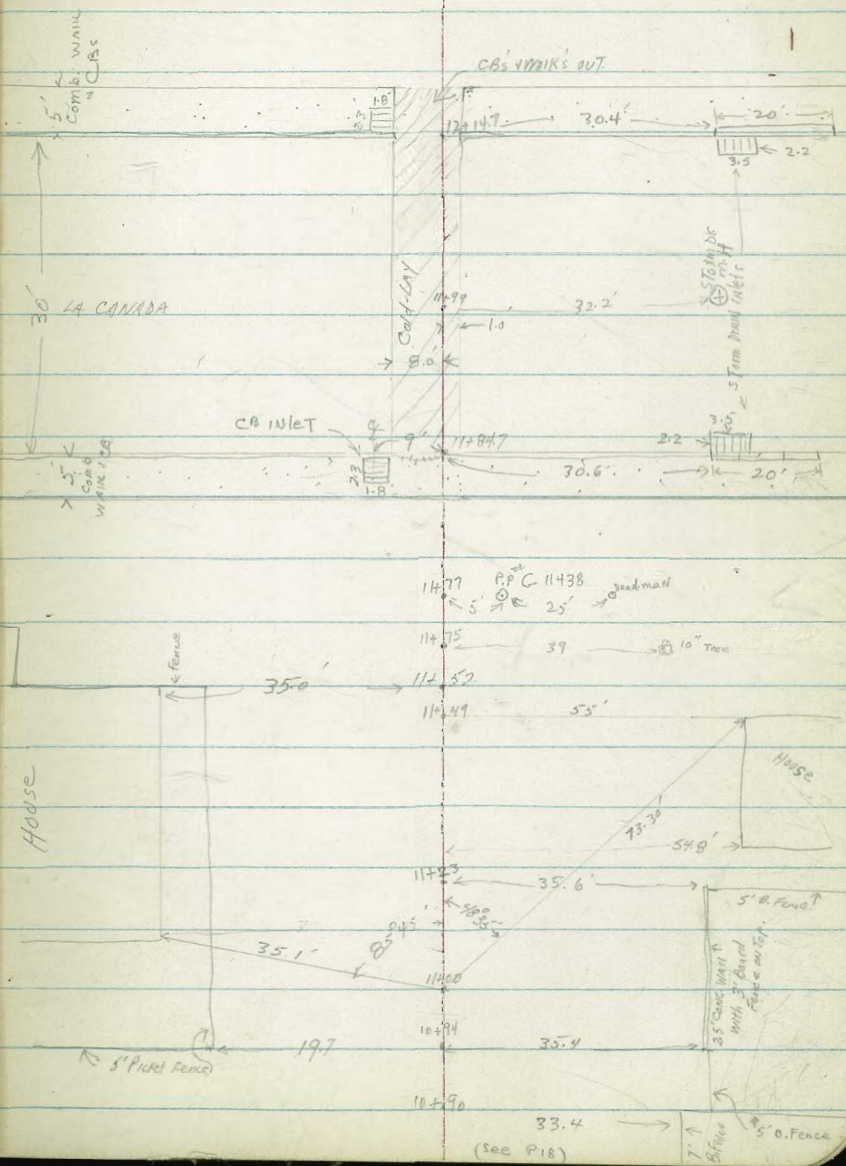 Comb. Walk
CBs
5'
CB's & Walk's OUT
1.8
2.3
12+14.7
30.4'
20'
2.2
3.5
30'
LA CANADA
Cold-Lay
11+99
32.2'
STORM DR
M.H
STORM DRAIN Inlets
1.0
8.0'
CB INLET
9'
11+84.7
2.2
2.3
1.8
30.6'
20'
5'
Comb
WALK & CB
11+77
P.P. # C 11438
Deadman
5'
25'
11+75
39
10" Tree
Fence
35.0'
11+52
11+49
55'
House
House
73.30'
54.8'
11+23
35.6'
5' B. Fence
48° 35'
85° 45'
35.1'
2.5' Conc Wall
with 3' Board
Fence on Top.
11+00
10+94
19.7
35.4
5' Picket Fence
10+90
33.4
7'
B. Fence
5' B. Fence
(See P18)